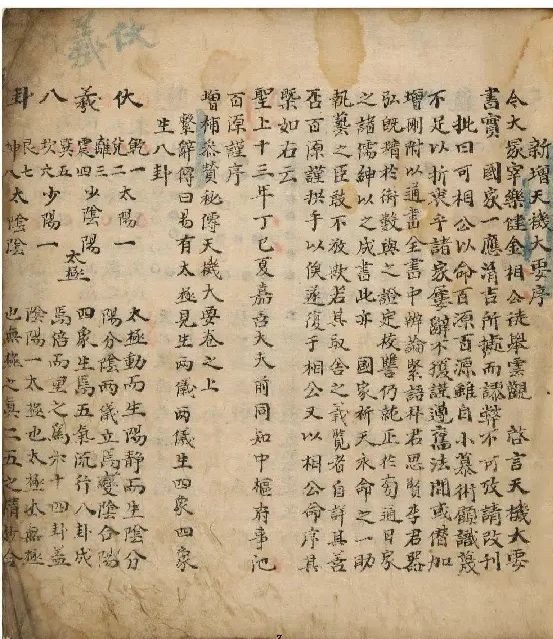 新增天機大要序
今大冢宰樂健金相公徒擧雲觀 啓言天機大要
書實 國家一應涓吉所據而謬弊不可攷請改刊
批曰可相公以命百源百源雖自小慕術顧識蔑
不足以折衷乎諸家辭不獲謹遵舊法間或僭加
增刪附以道書全書中辨論緊語朴君思賢李君器
弘旣贍於術數與之證定校讐仍就正於 通日家
之諸儒紳以之成書此亦 國家祈天永命之一助
執藝之臣敢不致欽若其取舍之義覽者自詳其善
否百源謹拱手以俟遂復于相公又以相公命序其
槩如右云
聖上十三年丁巳夏嘉善大夫前同知中樞府事池
百源謹序
增補參贊秘傳天機大要卷之上
繫辭傳曰易有太極是生兩儀兩儀生四象四象
生八卦
伏羲八卦
乾一 太陽
兌二 太陽
離三 少陰
震四 少陰
陽
太極
巽五 少陽
坎六 少陽
艮七 太陰
坤八 太陰
陰
太極動而生陽靜而生陰分
陽分陰兩儀立焉變陰合陽
四象生焉五氣流行八卦成
焉倍而重之爲六十四卦蓋
陰陽一太極也太極本無極
也無極之眞二五之精妙合
伏
羲